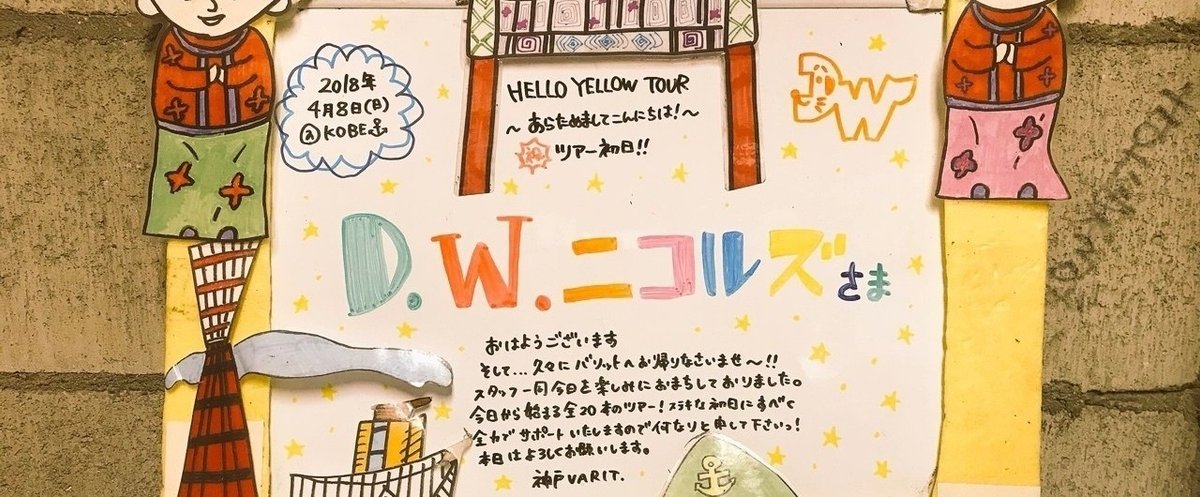 2018年
4月8日(日)
@KOBE
HELLO YELLOW TOUR
～あらためましてこんにちは！～
祝 ツアー初日!!
DW
D.W.ニコルズさま
おはようございます
そして...久々にバリットへお帰りなさいませ～!!
スタッフ一同今日を楽しみにおまちしておりました。
今日から始まる全20本のツアー！ステキな初日にすべく
全力でサポートいたしますので何なりと申して下さいっ！
本日はよろしくお願いします。
神戸VARIT.